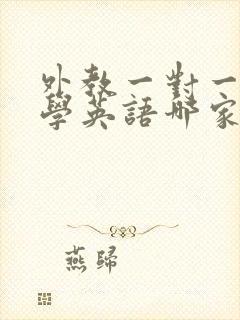 外教一對一
學英語哪家
燕歸